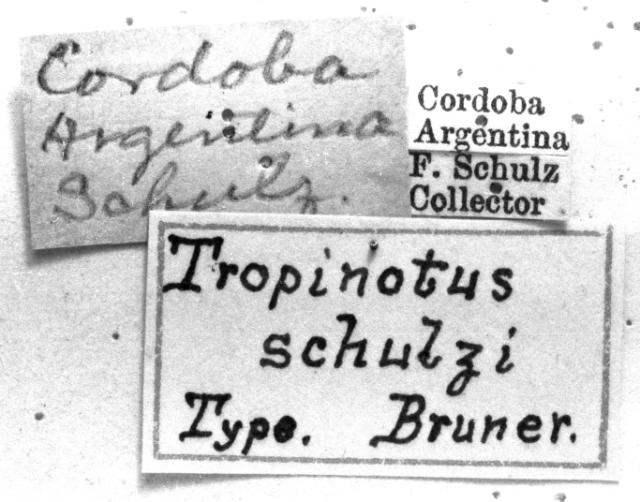 Cordoba
Argentina
Schulz.
Cordoba
Argentina
F. Schulz
Collector
Tropinotus
schulzi
Type. Bruner.